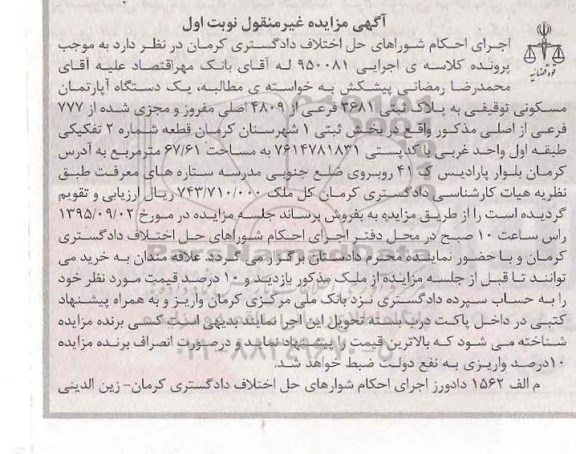 آگهی مزایده غیرمنقول نوبت اول
اجرای احکام شوراهای حل اختلاف دادگستری کرمان در نظر دارد به موجب
پرونده کلاسه ی اجرایی ۹۵۰۰۸۱ له آقای بانک مهراقتصاد علیه آقای
محمدرضا رمضانی پیشکش به خواسته ی مطالبه، یک دستگاه آپارتمان
مسکونی توقیفی به پلاک ثبتی ۳۶۸۱ فرعی از ۴۸۰۹ اصلی مفروز و مجزی شده از ۷۷۷
فرعی از اصلی مذکور واقع در بخش ثبتی ۱ شهرستان کرمان قطعه شماره ۲ تفکیکی
طبقه اول واحد غربی با کدپستی ۷۶۱۴۷۸۱۸۳۱ به مساحت ۶۷/۶۱ مترمربع به آدرس
کرمان بلوار پارادیس ک ۴۱ روبروی ضلع جنوبی مدرسه ستاره های معرفت طبق
نظریه هیات کارشناسی دادگستری کرمان کل ملک ۷۴۳/۷۱۰/۰۰۰ ریال ارزیابی و تقویم
گردیده است را از طریق مزایده به بفروش برساند جلسه مزایده در مورخ ۱۳۹۵/۰۹/۰۲
راس ساعت ۱۰ صبح در محل دفتر اجرای احکام شوراهای حل اختلاف دادگستری
کرمان و با حضور نماینده محترم دادستان برگزار می گردد. علاقه مندان به خرید می
توانند تا قبل از جلسه مزایده از ملک مذکور بازدید و ۱۰ درصد قیمت مورد نظر خود
را به حساب سپرده دادگستری نزد بانک ملی مرکزی کرمان واریز و به همراه پیشنهاد
کتبی در داخل پاکت دربسته تحویل این اجرا نمایند بدیهی است کسی برنده مزایده
شناخته می شود که بالاترین قیمت را پیشنهاد نماید و درصورت انصراف برنده مزایده
۱۰درصد واریزی به نفع دولت ضبط خواهد شد.
م الف ۱۵۶۲ دادورز اجرای احکام شوارهای حل اختلاف دادگستری کرمان- زین الدینی